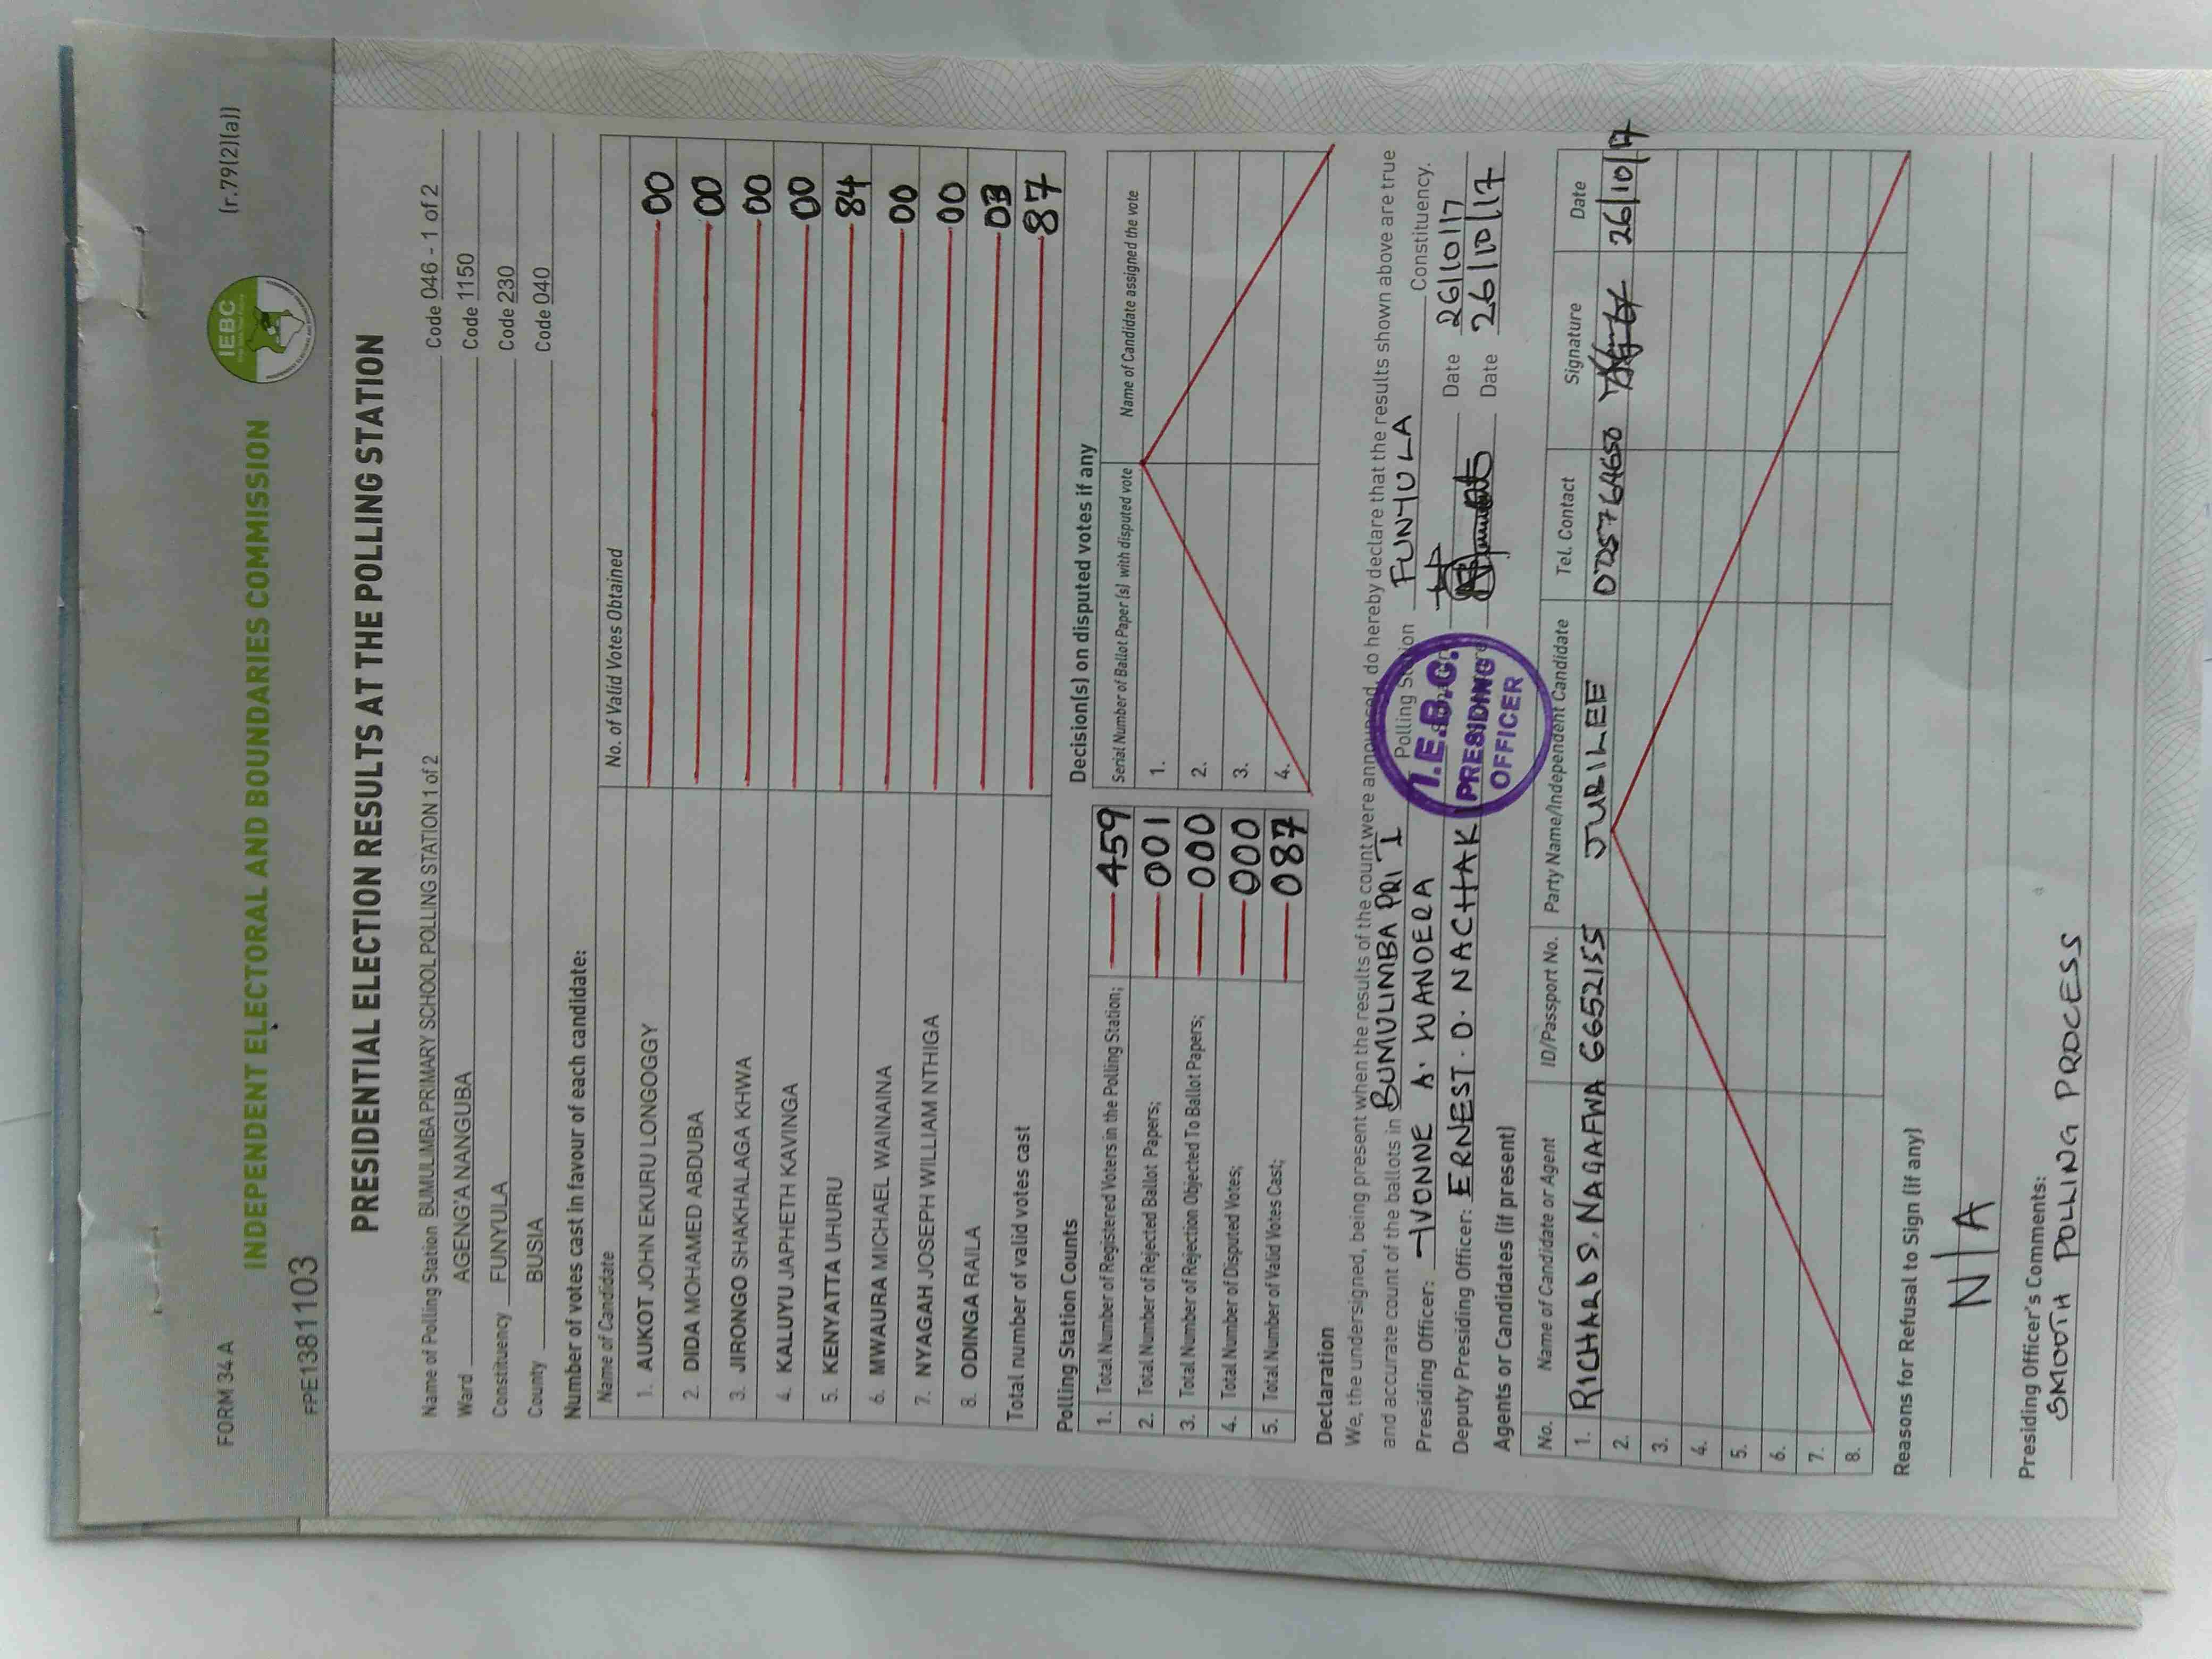 FORM 34 A
(r.79(2)(a))
IEBC
INDEPENDENT ELECTORAL AND BOUNDARIES COMMISSION
FPE1381103
PRESIDENTIAL ELECTION RESULTS AT THE POLLING STATION
Name of Polling Station BUMULIMBA PRIMARY SCHOOL POLLING STATION 1 of 2 Code 046 - 1 of 2
Ward AGENG'A NANGUBA Code 1150
Constituency FUNYULA Code 230
County BUSIA Code 040
Number of votes cast in favour of each candidate:
Name of Candidate No. of Valid Votes Obtained
1. AUKOT JOHN EKURU LONGOGGY 00
2. DIDA MOHAMED ABDUBA 00
3. JIRONGO SHAKHALAGA KHWA 00
4. KALUYU JAPHETH KAVINGA 00
5. KENYATTA UHURU 84
6. MWAURA MICHAEL WAINAINA 00
7. NYAGAH JOSEPH WILLIAM NTHIGA 00
8. ODINGA RAILA 03
Total number of valid votes cast 87
Polling Station Counts
1. Total Number of Registered Voters in the Polling Station; 459
2. Total Number of Rejected Ballot Papers; 001
3. Total Number of Rejection Objected To Ballot Papers; 000
4. Total Number of Disputed Votes; 000
5. Total Number of Valid Votes Cast; 087
Decision(s) on disputed votes if any
Serial Number of Ballot Paper (s) with disputed vote Name of Candidate assigned the vote
1.
2.
3.
4.
Declaration
We, the undersigned, being present when the results of the count were announced, do hereby declare that the results shown above are true
and accurate count of the ballots in BUMULIMBA PRI I Polling Station FUNYULA Constituency.
Presiding Officer: IVONNE A. WANDERA Date 26/10/17
Deputy Presiding Officer: ERNEST O. NACHAK Date 26/10/17
I.E.B.C.
PRESIDING
OFFICER
Agents or Candidates (if present)
No. Name of Candidate or Agent ID/Passport No. Party Name/Independent Candidate Tel. Contact Signature Date
1. RICHARD S. NAGAFWA 6652155 JUBILEE 26/10/17
2.
3.
4.
5.
6.
7.
8.
Reasons for Refusal to Sign (if any)
N/A
Presiding Officer's Comments:
SMOOTH POLLING PROCESS